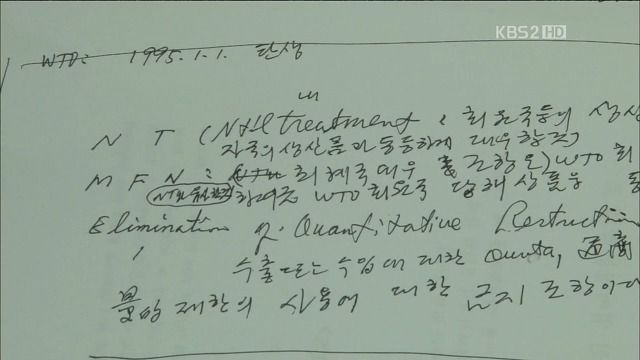 KBS2 HD
WTO: 1995.1.1. 탄생
내
N T (N'tl treatment : 회원국들의 생산
자국의 생산품과 동등하게 대우할 것)
M F N : 최혜국 대우 조항은) WTO 회
WTO 회원국 당해 상품을
Elimination of Quantitative Restriction
수출 또는 수입에 대한 Quota,
제한의 사용에 대한 금지 조항이다